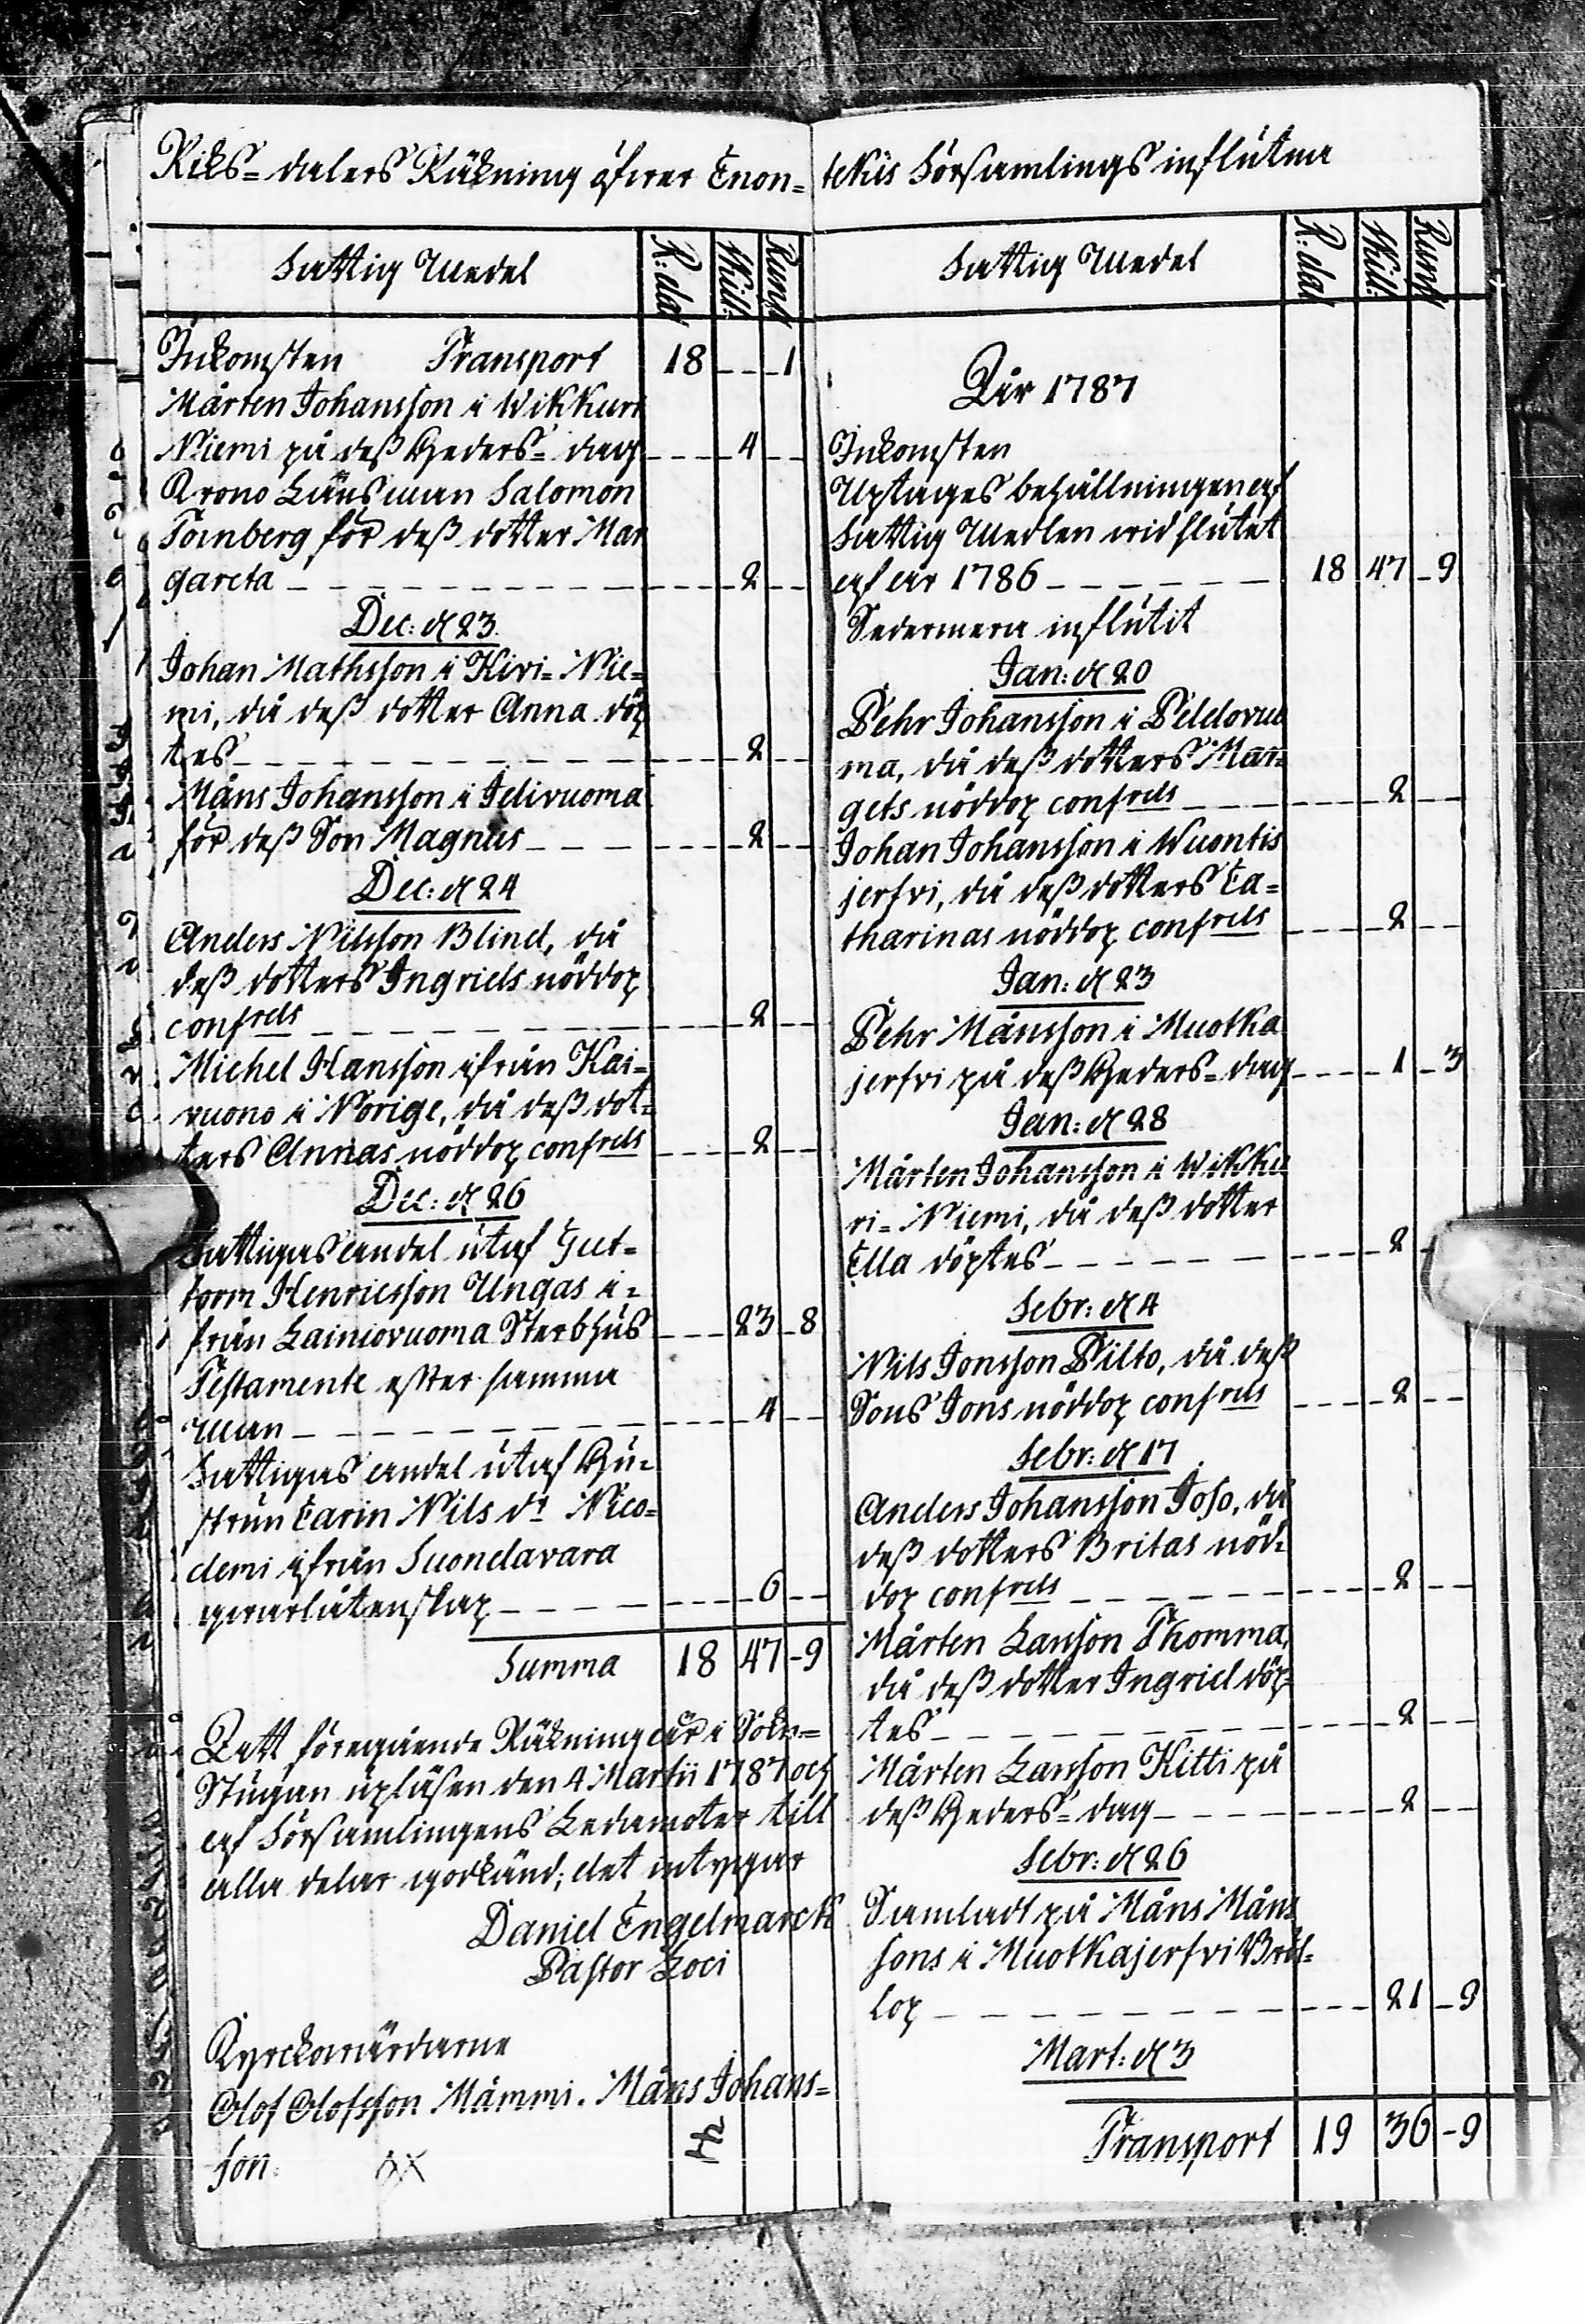 Riks=dalers Räkning öfwer Enon=tekis Församlings influtna
Fattig Medel R:dal Skill: Runst
Inkomsten Transport 18 - - - 1
Mårten Johansson i Wikkuri
Niemi på dess Heders=dag - - - 4 - -
Krono Länsman Salomon
Tornberg för dess dotter Mar
gareta - - - 2 - -
Dec: d 23.
Johan Mathsson i Kivi=Nie=
mi, då dess dotter Anna döp
tes - - - 2 - -
Måns Johansson i Idivuoma
för dess Son Magnus - - - 2 - -
Dec: d 24
Anders Nilsson Blind, då
dess dotters Ingrids nöddop
confrds - - - 2 - -
Michel Hansson ifrån Kai=
vuono i Norige, då dess dot=
ters Annas nöddop confrds - - - 2 - -
Dec: d 26
Fattigas andel utaf Gut=
torm Henricsson Ungas i=
från Lainiovuoma Sterbhus - - - 23 - 8
Testamente efter samma
man - - - 4 - -
Fattigas andel utaf Hu=
strun Carin Nils dr Nico=
demi ifrån Suondavara
qwarlåtenskap - - - 6 - -
Summa 18 47 - 9
Att föregående Räkning är i Sokn=
Stugan upläsen den 4 Martii 1787 och
af Församlingens Ledamoter till
alla delar godkänd; det intygar
Daniel Engelmarck
Pastor Loci
Kyrckowärdarne
Olof Olofsson Mämmi. Måns Johans=
son.
Fattig Medel R:dal Skill: Runst
År 1787
Inkomsten
Uptages behållningen af
Fattig Medlen wid slutet
af år 1786 - - - 18 47 - 9
Sedermera influtit
Jan: d 20
Pehr Johansson i Peldovuo
ma, då dess dotters Mar=
gets nöddop confrds - - - 2 - -
Johan Johansson i Wuontis
jerfvi, då dess dotters Ca=
tharinas nöddop confrds - - - 2 - -
Jan: d 23
Pehr Månsson i Muotka
jerfvi på dess Heders=dag - - - 1 - 3
Jan: d 28
Mårten Johansson i Wikku
ri=Niemi, då dess dotter
Ella döptes - - - 2 -
Febr: d 4
Nils Jonsson Pilto, då dess
Sons Jons nöddop confrds - - - 2 - -
Febr: d 17
Anders Johansson Joso, då
dess dotters Britas nöd=
dop confrds - - - 2 - -
Mårten Larsson Thomma,
då dess dotter Ingrid döp=
tes - - - 2 - -
Mårten Larsson Kitti på
dess Heders=dag - - - 2 - -
Febr: d 26
Samladt på Måns Måns
sons i Muotkajerfvi Bröl=
lop - - - 21 - 9
Mart: d 3
Transport 19 36 - 9